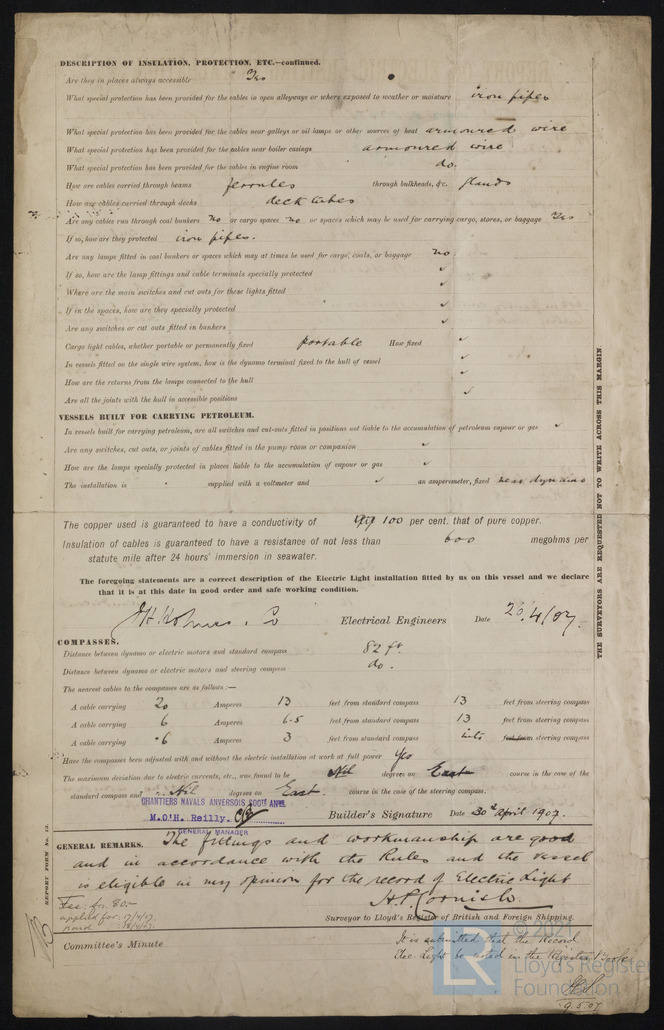 DESCRIPTION OF INSULATION, PROTECTION, ETC.—continued.
Are they in places always accessible Yes
What special protection has been provided for the cables in open alleyways or where exposed to weather or moisture iron pipes
What special protection has been provided for the cables near galleys or oil lamps or other sources of heat armoured wire
What special protection has been provided for the cables near boiler casings armoured wire
What special protection has been provided for the cables in engine room do.
How are cables carried through beams ferrules through bulkheads, &c. glands
How are cables carried through decks deck tubes
Are any cables run through coal bunkers no or cargo spaces no or spaces which may be used for carrying cargo, stores, or baggage Yes
If so, how are they protected iron pipes.
Are any lamps fitted in coal bunkers or spaces which may at times be used for cargo, coals, or baggage no
If so, how are the lamp fittings and cable terminals specially protected ✓
Where are the main switches and cut outs for these lights fitted ✓
If in the spaces, how are they specially protected ✓
Are any switches or cut outs fitted in bunkers ✓
Cargo light cables, whether portable or permanently fixed portable How fixed ✓
In vessels fitted on the single wire system, how is the dynamo terminal fixed to the hull of vessel ✓
How are the returns from the lamps connected to the hull ✓
Are all the joints with the hull in accessible positions ✓
VESSELS BUILT FOR CARRYING PETROLEUM.
In vessels built for carrying petroleum, are all switches and cut-outs fitted in positions not liable to the accumulation of petroleum vapour or gas ✓
Are any switches, cut outs, or joints of cables fitted in the pump room or companion ✓
How are the lamps specially protected in places liable to the accumulation of vapour or gas ✓
The installation is supplied with a voltmeter and ✓ an amperemeter, fixed near dynamo
The copper used is guaranteed to have a conductivity of 100 per cent. that of pure copper.
Insulation of cables is guaranteed to have a resistance of not less than 600 megohms per
statute mile after 24 hours' immersion in seawater.
The foregoing statements are a correct description of the Electric Light installation fitted by us on this vessel and we declare
that it is at this date in good order and safe working condition.
JH Holmes & Co Electrical Engineers Date 26/4/07.
COMPASSES.
Distance between dynamo or electric motors and standard compass 82 ft
Distance between dynamo or electric motors and steering compass do.
The nearest cables to the compasses are as follows:—
A cable carrying 20 Amperes 13 feet from standard compass 13 feet from steering compass
A cable carrying 6 Amperes 6.5 feet from standard compass 13 feet from steering compass
A cable carrying .6 Amperes 3 feet from standard compass into feet from steering compass
Have the compasses been adjusted with and without the electric installation at work at full power Yes
The maximum deviation due to electric currents, etc., was found to be Nil degrees on East course in the case of the
standard compass and Nil degrees on East. course in the case of the steering compass.
CHANTIERS NAVALS ANVERSOIS SOCTÉ ANME.
M. O'H. Reilly.
GENERAL MANAGER
Builder's Signature Date 30th April 1907.
GENERAL REMARKS. The fittings and workmanship are good
and in accordance with the Rules and the vessel
is eligible in my opinion for the record of Electric Light
H.P. Cornish
Surveyor to Lloyd's Register of British and Foreign Shipping.
Fee: fr. 80:-
applied for: 17/4/07.
Committee's Minute
It is submitted that the Record
Elec. Light be noted in the Register Book
9.5.07
REPORT FORM No. 13.
THE SURVEYORS ARE REQUESTED NOT TO WRITE ACROSS THIS MARGIN
LR
© 2021
Lloyd's Register
Foundation